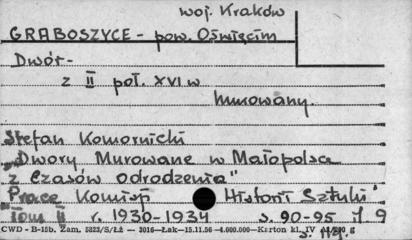 woj. Kraków
GRABOSZYCE - pow. Oświęcim
Dwór -
z II poł. XVI w
murowany.
Stefan Komornicki
"Dwory Murowane w Małopolsce
z Czasów Odrodzenia"
Prace Komisji Historii Sztuki
Tom II r. 1930-1934 s. 90-95 il. 9
CWD - B-15b. Zam. 5823/S/Łż — 3016—Łak—15.11.56 —4.000.000—Karton kl. IV
s. 119.